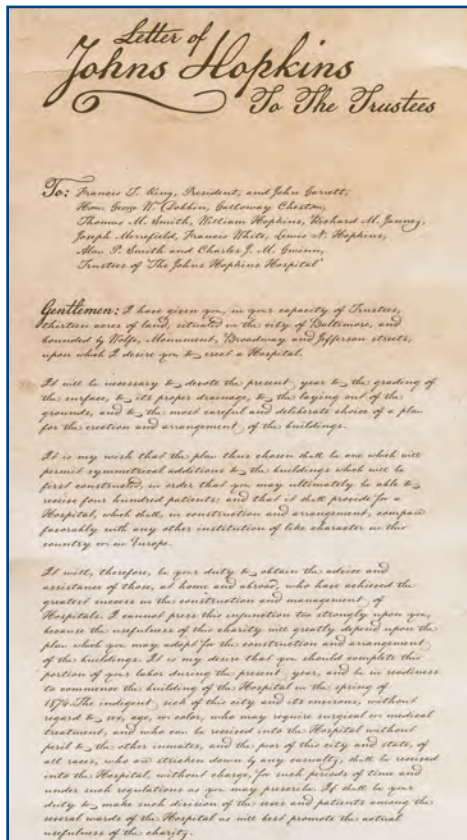 Letter of
Johns Hopkins
To The Trustees
To: Francis T. King, President, and John Garrett,
Hon. Geow W. Dobbin, Galloway Cheston,
Thomas M. Smith, William Hopkins, Richard M. Janney,
Joseph Merrefield, Francis White, Lewis N. Hopkins,
Alan P. Smith and Charles J. M. Gwinn,
Trustees of 'The Johns Hopkins Hospital'
Gentlemen: I have given you, in your capacity of Trustees,
thirteen acres of land, situated in the city of Baltimore, and
bounded by Wolfe, Monument, Broadway and Jefferson streets,
upon which I desire you to erect a Hospital.
It will be necessary to devote the present year to the grading of
the surface, to its proper drainage, to the laying out of the
grounds, and to the most careful and deliberate choice of a plan
for the erection and arrangement of the buildings.
It is my wish that the plan thus chosen shall be one which will
permit symmetrical additions to the buildings which will be
first constructed, in order that you may ultimately be able to
receive four hundred patients; and that it shall provide for a
Hospital, which shall, in construction and arrangement, compare
favorably with any other institution of like character in this
country or in Europe.
It will, therefore, be your duty to obtain the advice and
assistance of those, at home and abroad, who have achieved the
greatest success in the construction and management of
Hospitals. I cannot press this injunction too strongly upon you,
because the usefulness of this charity will greatly depend upon the
plan which you may adopt for the construction and arrangement
of the buildings. It is my desire that you should complete this
portion of your labor during the present year, and be in readiness
to commence the building of the Hospital in the spring of
1874. The indigent sick of this city and its environs, without
regard to sex, age, or color, who may require surgical or medical
treatment, and who can be received into the Hospital without
peril to the other inmates, and the poor of this city and state, of
all races, who are stricken down by any casualty, shall be received
into the Hospital, without charge, for such periods of time and
under such regulations as you may prescribe. It shall be your
duty to make such division of the sexes and patients among the
several wards of the Hospital as will best promote the actual
usefulness of the charity.